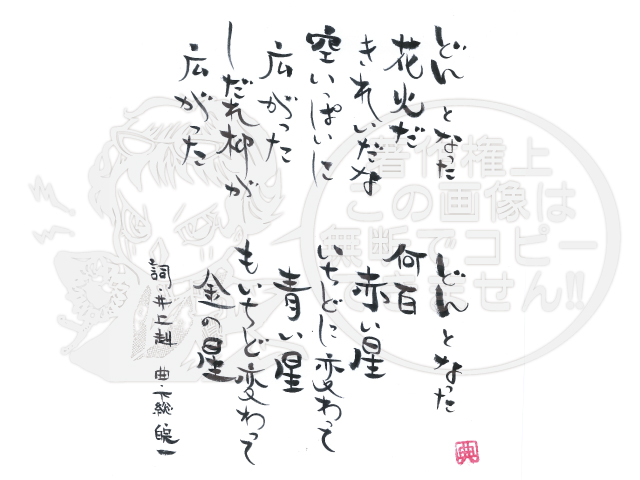 どんとなった
花火だ
きれいだな
空いっぱいに
広がった
しだれ柳が
広がった
どんとなった
何百
赤い星
いちどに変わって
青い星
もいちど変わって
金の星
詞・井上赳 曲・下総皖一
著作権上
この画像は
無断でコピー
できません!!
典